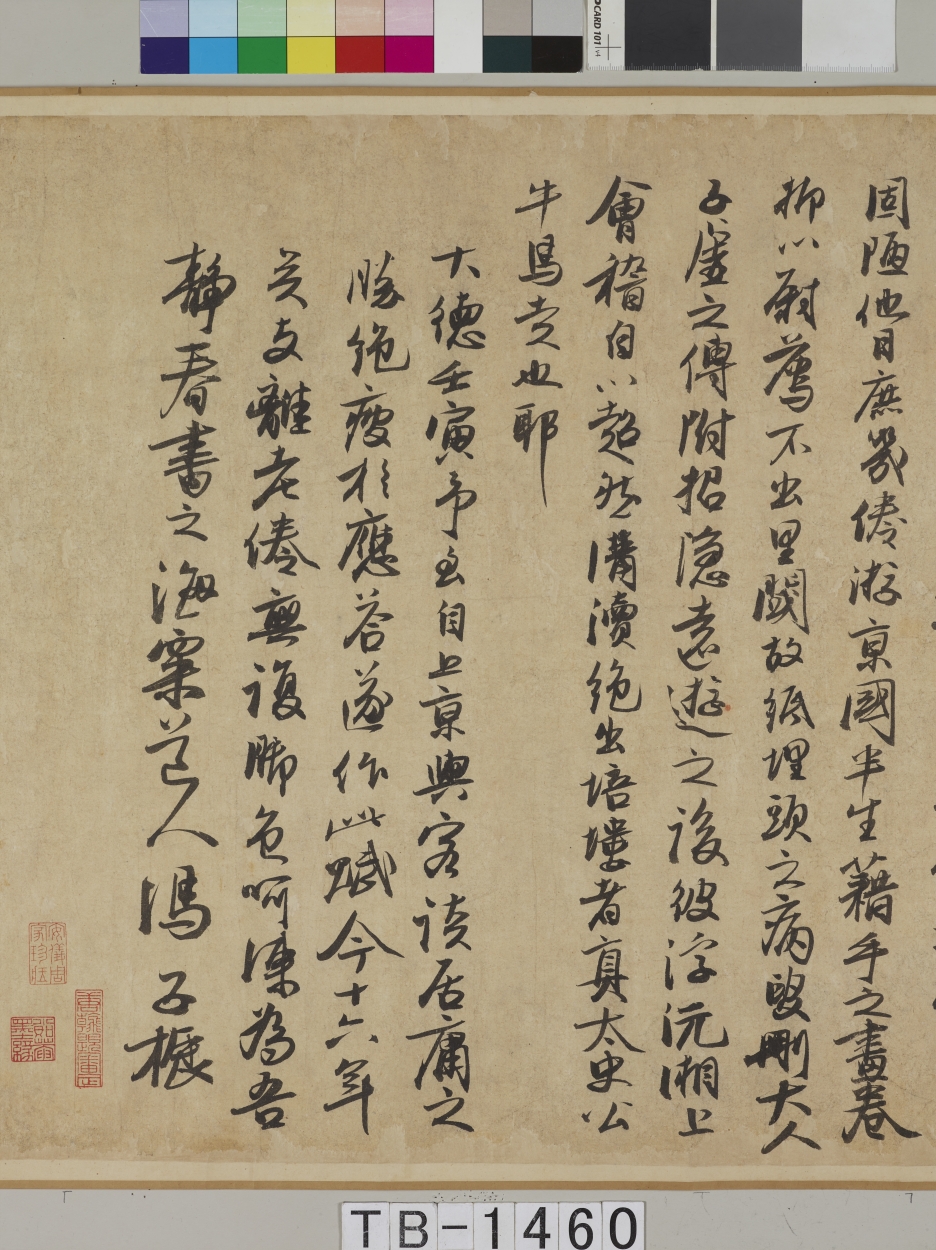 CARD 101
固陋他日庶幾倦游京國半生藉手之畫卷
抑以尉薦不出里閾故紙埋頭之病叟刪大人
子虛之傳附招隱遠遊之後彼浮沅湘上
會稽自以超然溝瀆絕出培塿者真太史公
牛馬走也耶
大德壬寅予至自上京與客談居庸之
勝絕疲於應答遂作此賦今十六年
矣支離老倦無復脚色呵凍為吾
靜春書之海粟道人馮子振
安儀周家珍藏
TB-1460